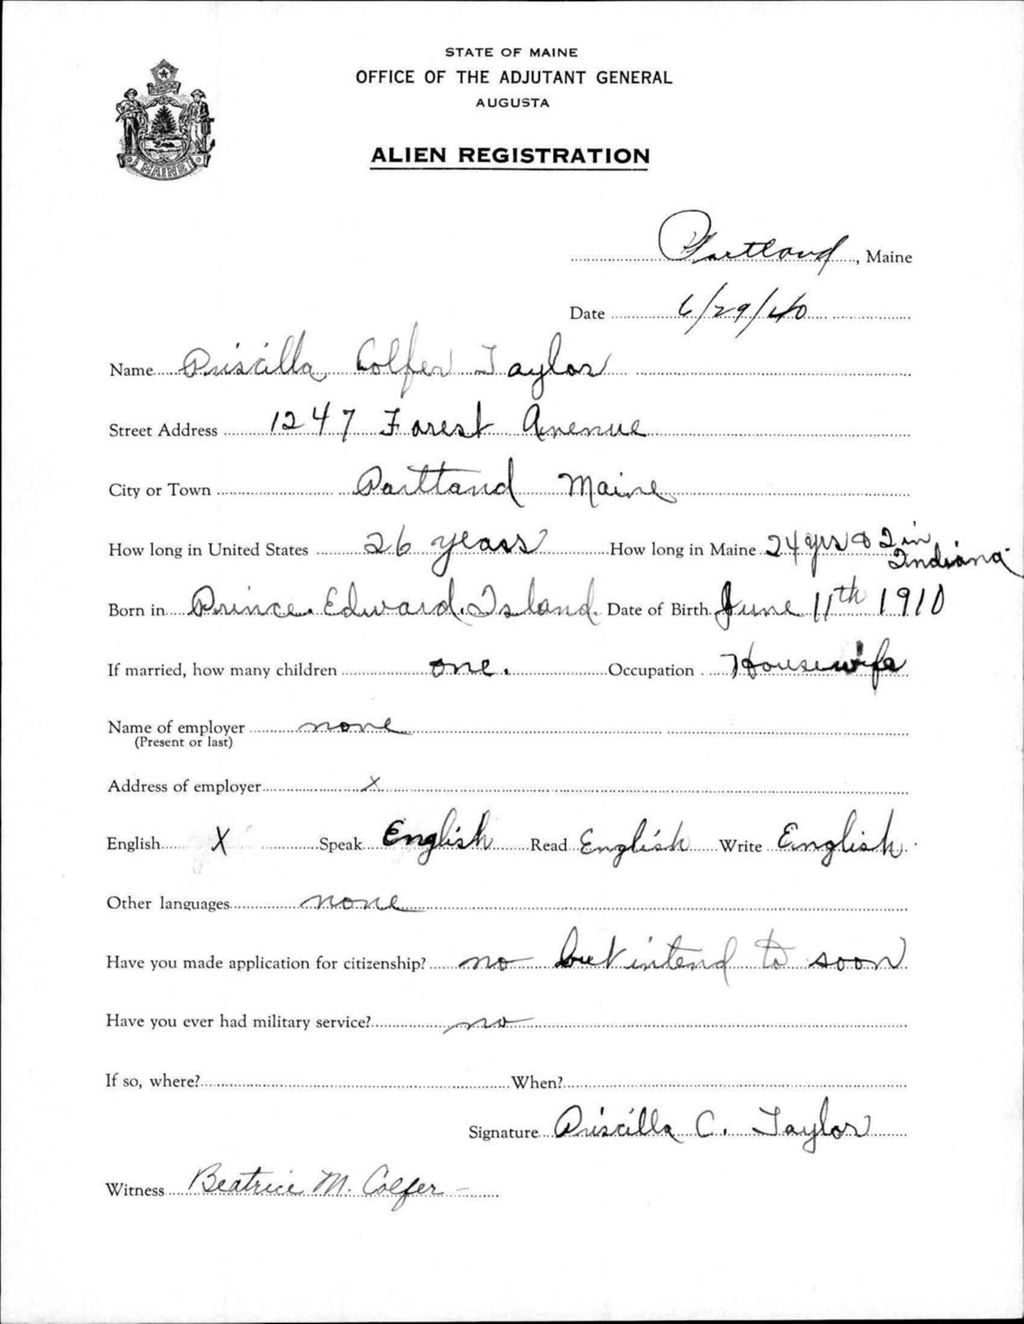 STATE OF MAINE
OFFICE OF THE ADJUTANT GENERAL
AUGUSTA
ALIEN REGISTRATION
MAINE
Portland, Maine
Date 6/29/40
Name Priscilla Colfer Taylor
Street Address 1247 Forest Avenue
City or Town Portland Maine
How long in United States 26 years How long in Maine 24 yrs & 2 in Indiana
Born in Prince Edward Island Date of Birth June 11th 1910
If married, how many children one. Occupation Housewife
Name of employer none
(Present or last)
Address of employer x
English X Speak English Read English Write English
Other languages none
Have you made application for citizenship? no but intend to soon
Have you ever had military service? no
If so, where? When?
Signature Priscilla C. Taylor
Witness Beatrice M. Colfer